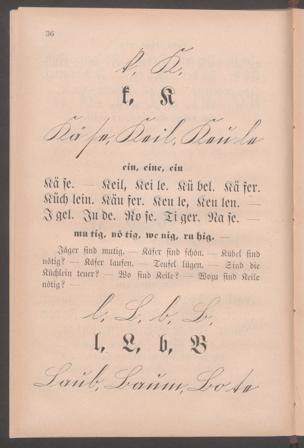 36
k, K.
k, K
Kä se, Keil, Keu le
ein, eine, ein
Kä se. — Keil, Kei le. Kü bel. Kä fer.
Küch lein. Käu fer. Keu le, Keu len. —
I gel. Ju de. Ro se. Ti ger. Na se. —
mu tig, nö tig, we nig, ru hig. —
Jäger sind mutig. — Käfer sind schön. — Kübel sind
nötig? — Käfer laufen. — Teufel lügen. — Sind die
Küchlein teuer? — Wo sind Keile? — Wozu sind Keile
nötig? —
l, L, b, B.
l, L, b, B
Laub, Baum, Bo te